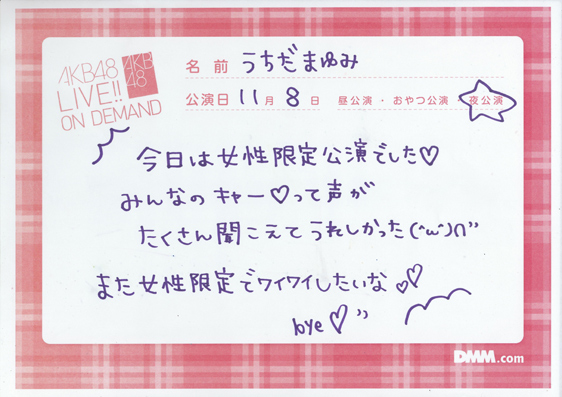 AKB48
LIVE!!
ON DEMAND
AKB
48
名前 うちだまゆみ
公演日 11月8日 昼公演・おやつ公演・夜公演
今日は女性限定公演でした♡
みんなのキャー♡って声が
たくさん聞こえてうれしかった(^ω^)∩"
また女性限定でワイワイしたいな♡♡
bye♡"
DMM.com